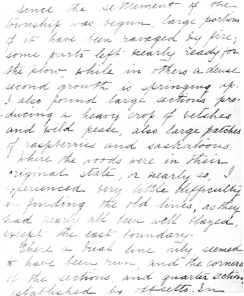 since the settlement of the
township was begun large portions
of it have been ravaged by fire;
some parts left nearly ready for
the plow, while in others a dense
second growth is springing up.
I also found large sections pro-
ducing a heavy crop of vetches
and wild pease, also large patches
of raspberries and saskatoons.
Where the woods were in their
original state, or nearly so, I
experienced very little difficulty
in finding the old lines, as they
had nearly all been well blazed,
except the east boundary.
There a trial line only seemed
to have been run, and the corners
of the sections, and quarter sections
established by offsetts. In